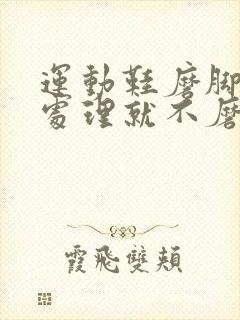 運動鞋磨脚
處理就不磨
霞飛雙頰